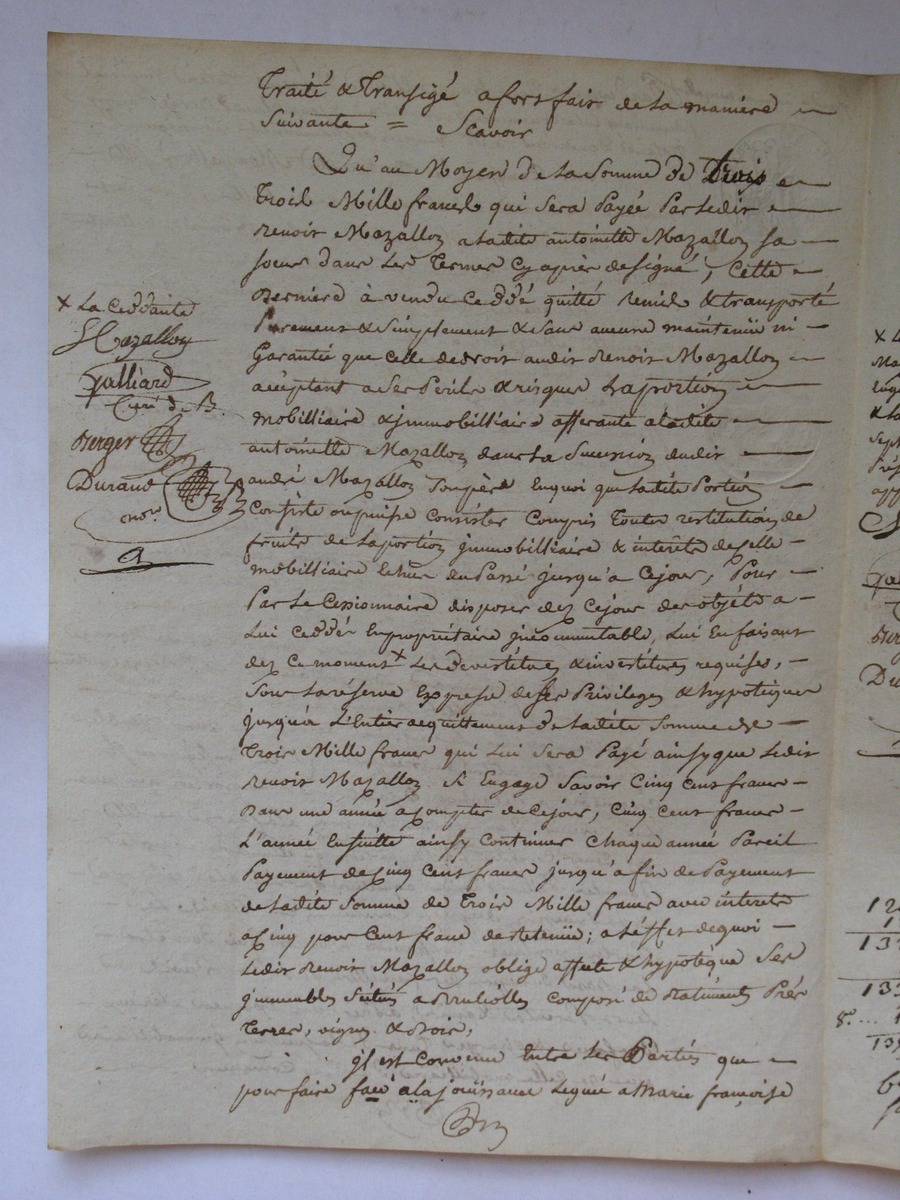 Traité & Transigé a forfait de la maniere
Suivante = Scavoir
Qu'au Moyen de la Somme de Trois
Trois Mille francs qui sera Payée Par ledit
Benoit Mazallon a ladite antoinette Mazallon sa
soeur dans les Termes cy après designé, Cette
Derniere à vendu ceddé quitté remis & transporté
Purement & simplement & sans aucune maintenüe ni
Garantie que celle de droit audit Benoit Mazallon
acceptant a ses Perils & risques la portion
mobilliaire & immobilliaire afferante a ladite
antoinette Mazallon dans la Succession dudit
andré Mazallon son père En quoi que ladite Portion
Consiste ou puisse consister Compris toutes restitutions de
fruits de la portion jmmobilliaire & interets de celle
mobilliaire Echus du Passé jusqu'a ce jour, Pour
Par le Cessionnaire disposer dez ce jour des objets a
Lui ceddés En propriétaire jncommutable, Lui En faisant
dez ce moment x Les devestitures & investitures requises,
Sous la réserve Expresse de ses Privileges & hypotèques
jusqu'a L'Entier acquittement de ladite Somme de
Trois Mille francs qui Lui sera Payé ainsy que Ledit
Benoit Mazallon s'Engage Savoir Cinq Cent francs
Dans une année a compter de ce jour, Cinq Cent francs
L'année Ensuitte ainsy continuer chaque année Pareil
Payement de Cinq Cent francs jusqu'a fin de Payement
de ladite Somme de Trois Mille francs avec interets
a Cinq pour Cent franc de retenüe; a l'effet de quoi
Ledit Benoit Mazallon oblige affecte & hypotèque Ses
jmmeubles Situés a Brulliolles composé de Batiments Prés
Terres, vignes & bois,
jl est convenu Entre les Parties que
pour faire face a la joüissance Leguée a Marie françoise
x La Ceddante
Mazallon
Galliard
Curé de B.
Berger
Durand
nore
x L
Ma
Sept
Du
8.